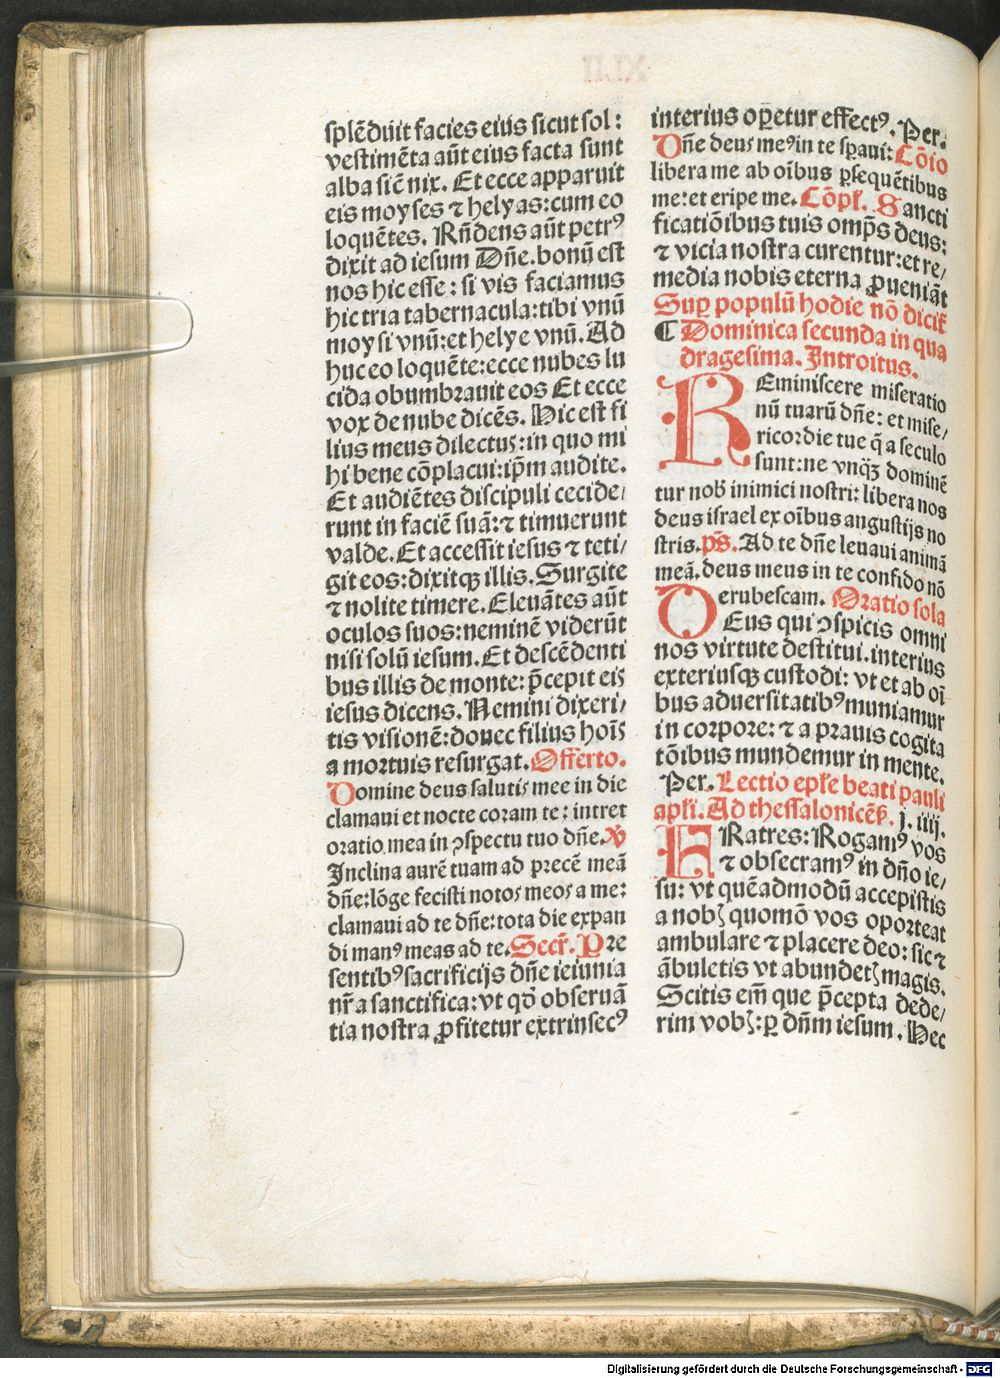 splēduit facies eius sicut sol:
vestimēta aūt eius facta sunt
alba sic̄ nix. Et ecce apparuit
eis moyses ⁊ helyas: cum eo
loquētes. Rn̄dens aūt petrꝰ
dixit ad iesum Dn̄e. bonū est
nos hic esse: si vis faciamus
hic tria tabernacula: tibi vnū
moysi vnū: et helye vnū. Ad
huc eo loquēte: ecce nubes lu
cida obumbrauit eos Et ecce
vox de nube dicēs. Hic est fi
lius meus dilectus: in quo mi
hi bene cōplacui: ip̄m audite.
Et audiētes discipuli cecide/
runt in faciē suā: ⁊ timuerunt
valde. Et accessit iesus ⁊ teti/
git eos: dixitqꝫ illis. Surgite
⁊ nolite timere. Eleuātes aūt
oculos suos: neminē viderūt
nisi solū iesum. Et descēdenti
bus illis de monte: p̄cepit eis
iesus dicens. Nemini dixeri/
tis visionē: donec filius hoīs
a mortuis resurgat. Offerto.
Domine deus salutis mee in die
clamaui et nocte coram te: intret
oratio mea in ↄspectu tuo dn̄e. ℣
Inclina aurē tuam ad precē meā
dn̄e: lōge fecisti notos meos a me:
clamaui ad te dn̄e: tota die expan
di manꝰ meas ad te. Secr̄. Pre
sentibꝰ sacrificijs dn̄e ieiunia
nr̄a sanctifica: vt qd̄ obseruā
tia nostra ꝓfitetur extrinsecꝰ
interius op̄etur effectꝰ. Per.
Dn̄e deus meꝰ in te sꝑaui: Cōio
libera me ab oībus ꝑsequētibus
me: et eripe me. Cōpl̄. Sancti
ficatiōibus tuis omp̄s deus:
⁊ vicia nostra curentur: et re/
media nobis eterna ꝓueniāt
Suꝑ populū hodie nō dicit̄
¶ Dominica secunda in qua
dragesima. Introitus.
REminiscere miseratio
nū tuarū dn̄e: et mise/
ricordie tue q̄ a seculo
sunt: ne vnq̄ꝫ dominē
tur nob̄ inimici nostri: libera nos
deus israel ex oībus angustijs no
stris. ps̄. Ad te dn̄e leuaui animā
meā. deus meus in te confido nō
erubescam. Oratio sola
DEus qui ↄspicis omni
nos virtute destitui. interius
exteriusqꝫ custodi: vt et ab oī
bus aduersitatibꝰ muniamur
in corpore: ⁊ a prauis cogita
tōibus mundemur in mente.
Per. Lectio epl̄e beati pauli
apl̄i. Ad thessalonicēs̄. j. iiij.
FRatres: Rogamꝰ vos
⁊ obsecramꝰ in dn̄o ie/
su: vt quēadmodū accepistis
a nobꝫ quomō vos oporteat
ambulare ⁊ placere deo: sic ⁊
ābuletis vt abundetꝫ magis.
Scitis em̄ que p̄cepta dede/
rim vobꝫ: ꝑ dn̄m iesum. Hec
Digitalisierung gefördert durch die Deutsche Forschungsgemeinschaft - DFG